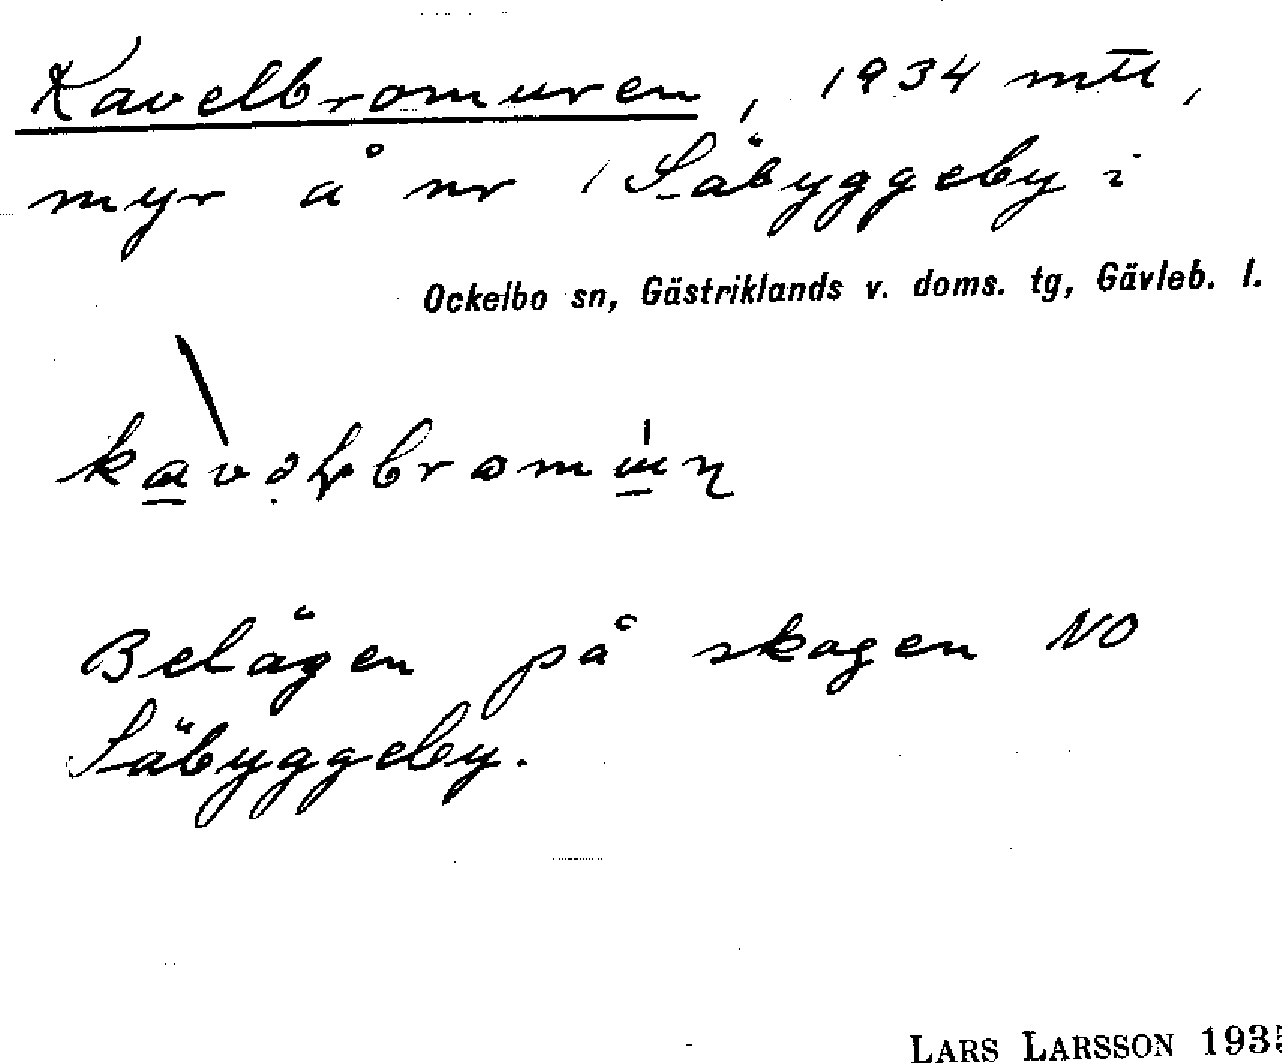 Kavelbromuren, 1934 mtl,
myr å nr 1 Säbyggeby i
Ockelbo sn, Gästriklands v. doms. tg, Gävleb. l.
Belägen på skogen NO
Säbyggeby.
LARS LARSSON 1935